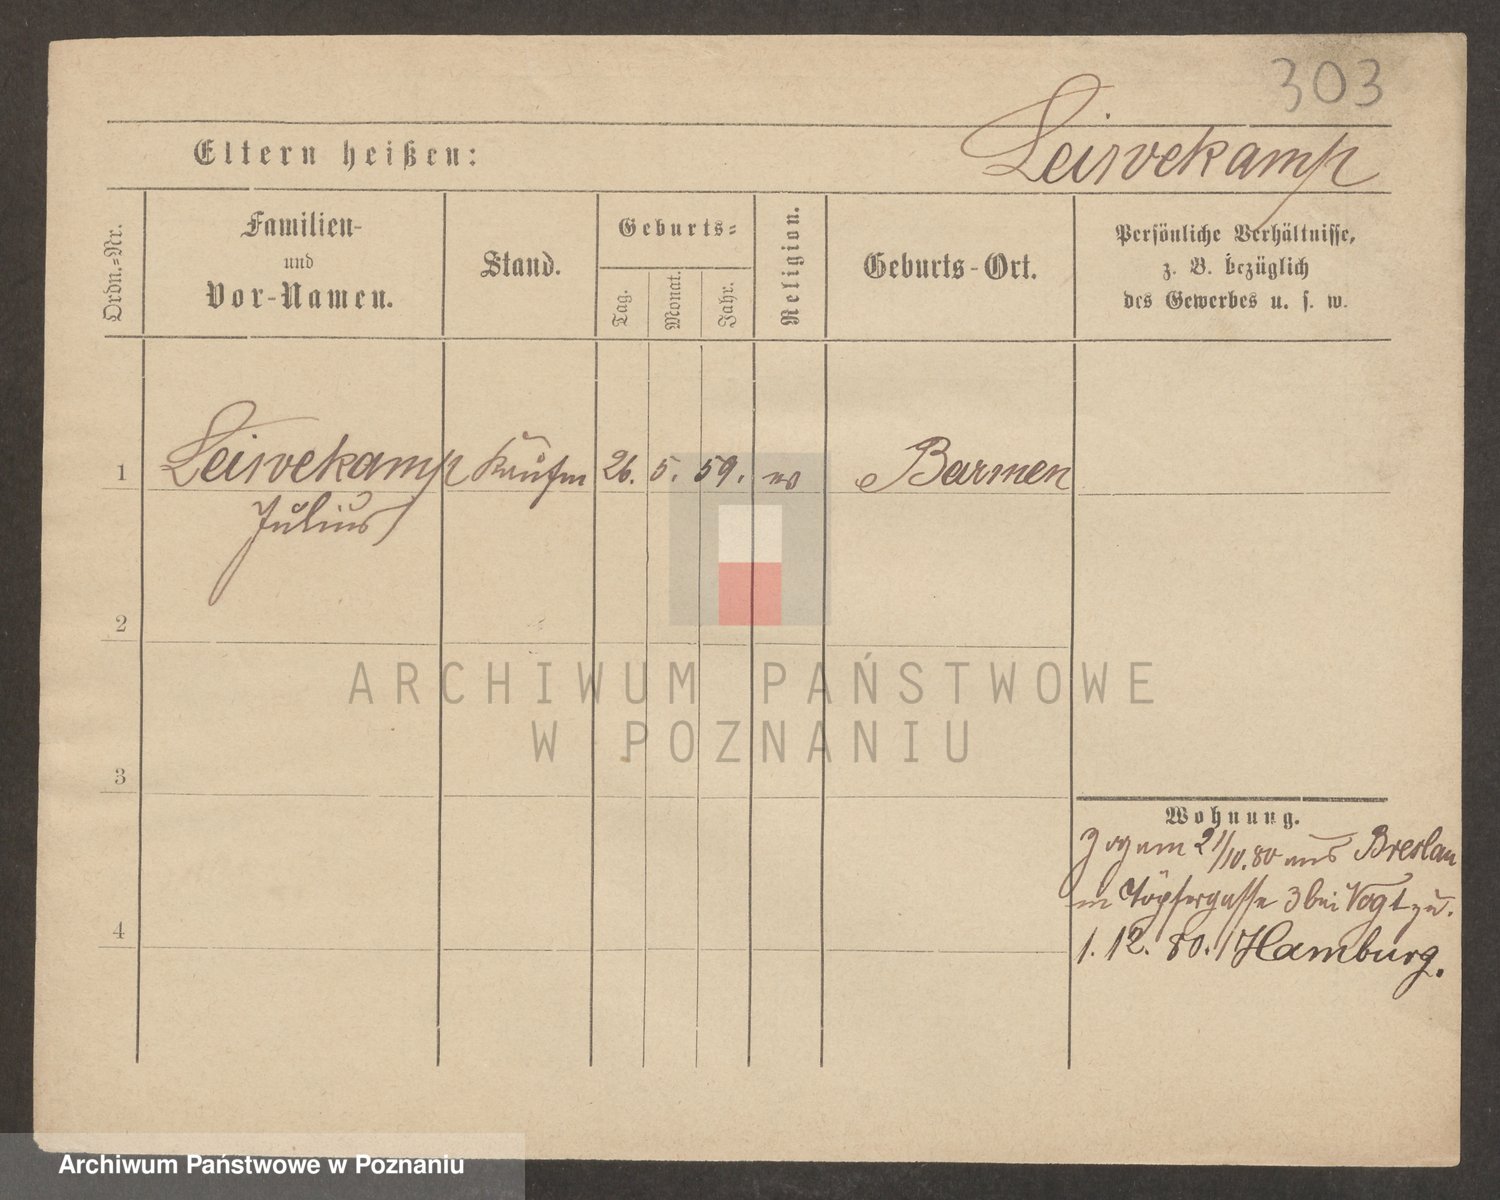 303
Leisvekamp
Eltern heißen:
Ordn.-Nr.
Familien-
und
Vor-Namen.
Stand.
Geburts-
Tag.
Monat.
Jahr.
Religion.
Geburts-Ort.
Persönliche Verhältnisse,
z. B. bezüglich
des Gewerbes u. s. w.
1 Leisvekamp Kaufm 26. 5. 59. ev Barmen
Julius
2
3
4
Wohnung.
Zog am 21/10.80 aus Breslau
in Töpfergasse 3 bei Vogt zu.
1. 12. 80. Hamburg.
ARCHIWUM PAŃSTWOWE
W POZNANIU
Archiwum Państwowe w Poznaniu